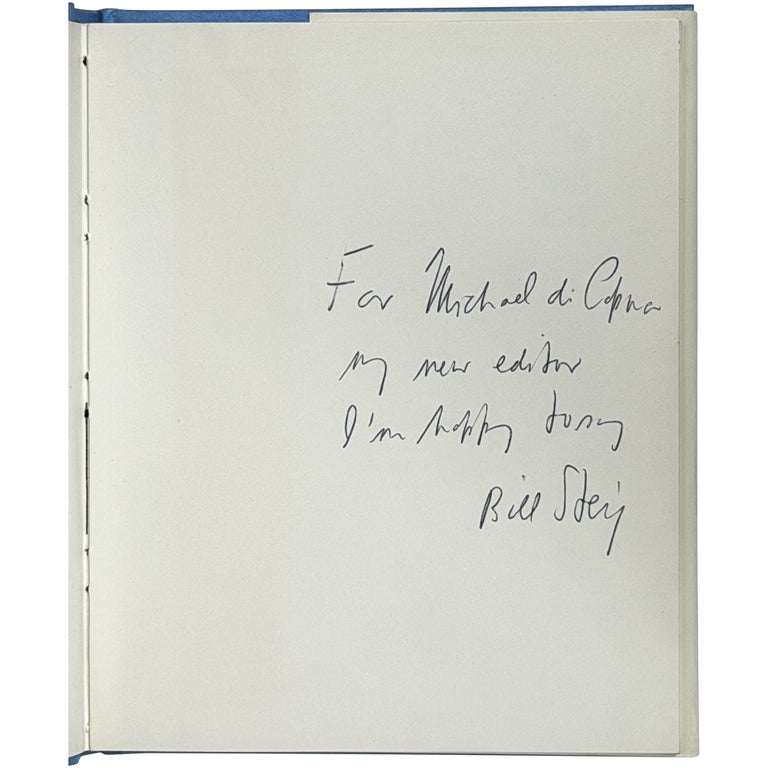 For Michael di Capua
my new editor
I'm happy to say
Bill Steig